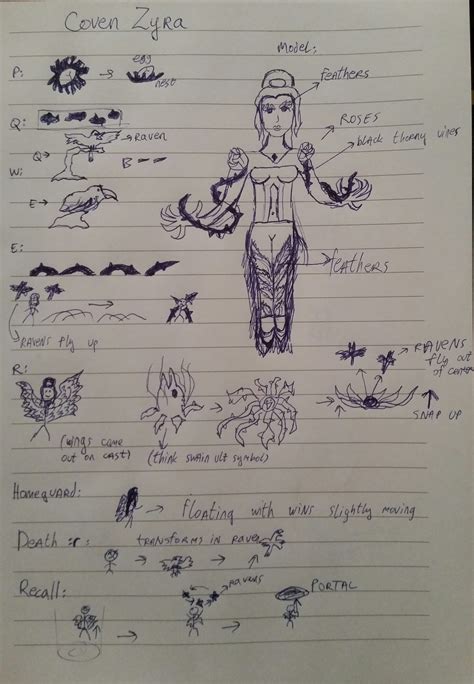 Coven Zyra
Model:
feathers
P:
egg
nest
ROSES
black thorny vines
Q:
Raven
Q
B
W:
E
E:
feathers
RAVENS FLY UP
RAVENS
fly out
of center
R:
SNAP UP
(wings come
out on cast)
(think swain ult symbol)
Homeguard:
Floating with wins slightly moving
Death :r:
transforms in raven
Recall:
RAVENS
PORTAL